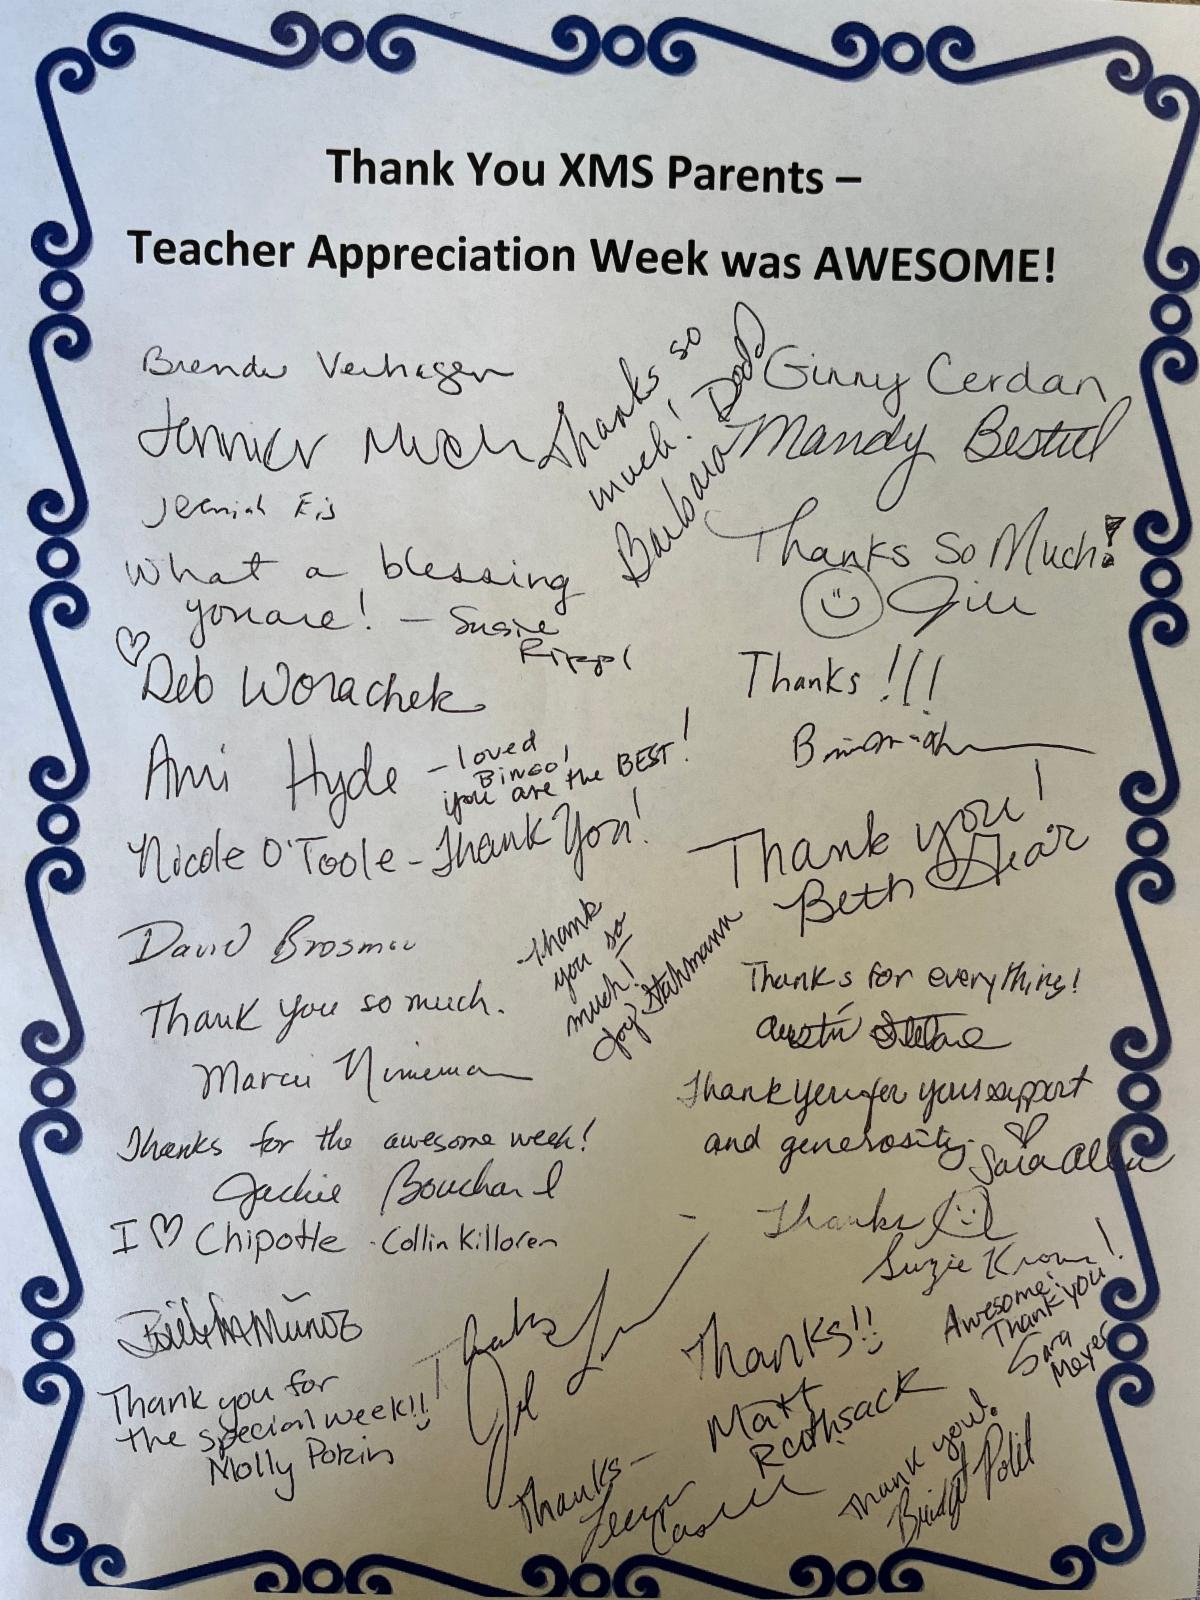 Thank You XMS Parents –
Teacher Appreciation Week was AWESOME!
Brenda Verhagen
Jeremiah Eis
What a blessing
you are! – Susie
Rippl
♡
Deb Worachek
Ami Hyde – loved
Bingo!
you are the BEST!
Nicole O'Toole – Thank You!
David
Thank you so much.
Marci
Thanks for the awesome week!
Jackie Bouchard
I ♡ Chipotle - Collin Killoren
Muñoz
Thank you for
the special week!!
Molly
Thanks so
much!
Barbara Dodd
Thank
you so
much!
Joy Stahmann
Thanks
Thanks –
Ginny Cerdan
Mandy Bestul
Thanks So Much!
Jill
Thanks !!!
Thank you!
Beth
Thanks for everything!
Austin
Thank you for your support
and generosity. ♡
Sara Allen
Thanks
Suzie
Awesome!
Thank you!
Sara
Meyer
Thanks!!
Matt
Rothsack
Thank you!
Bridget Polit